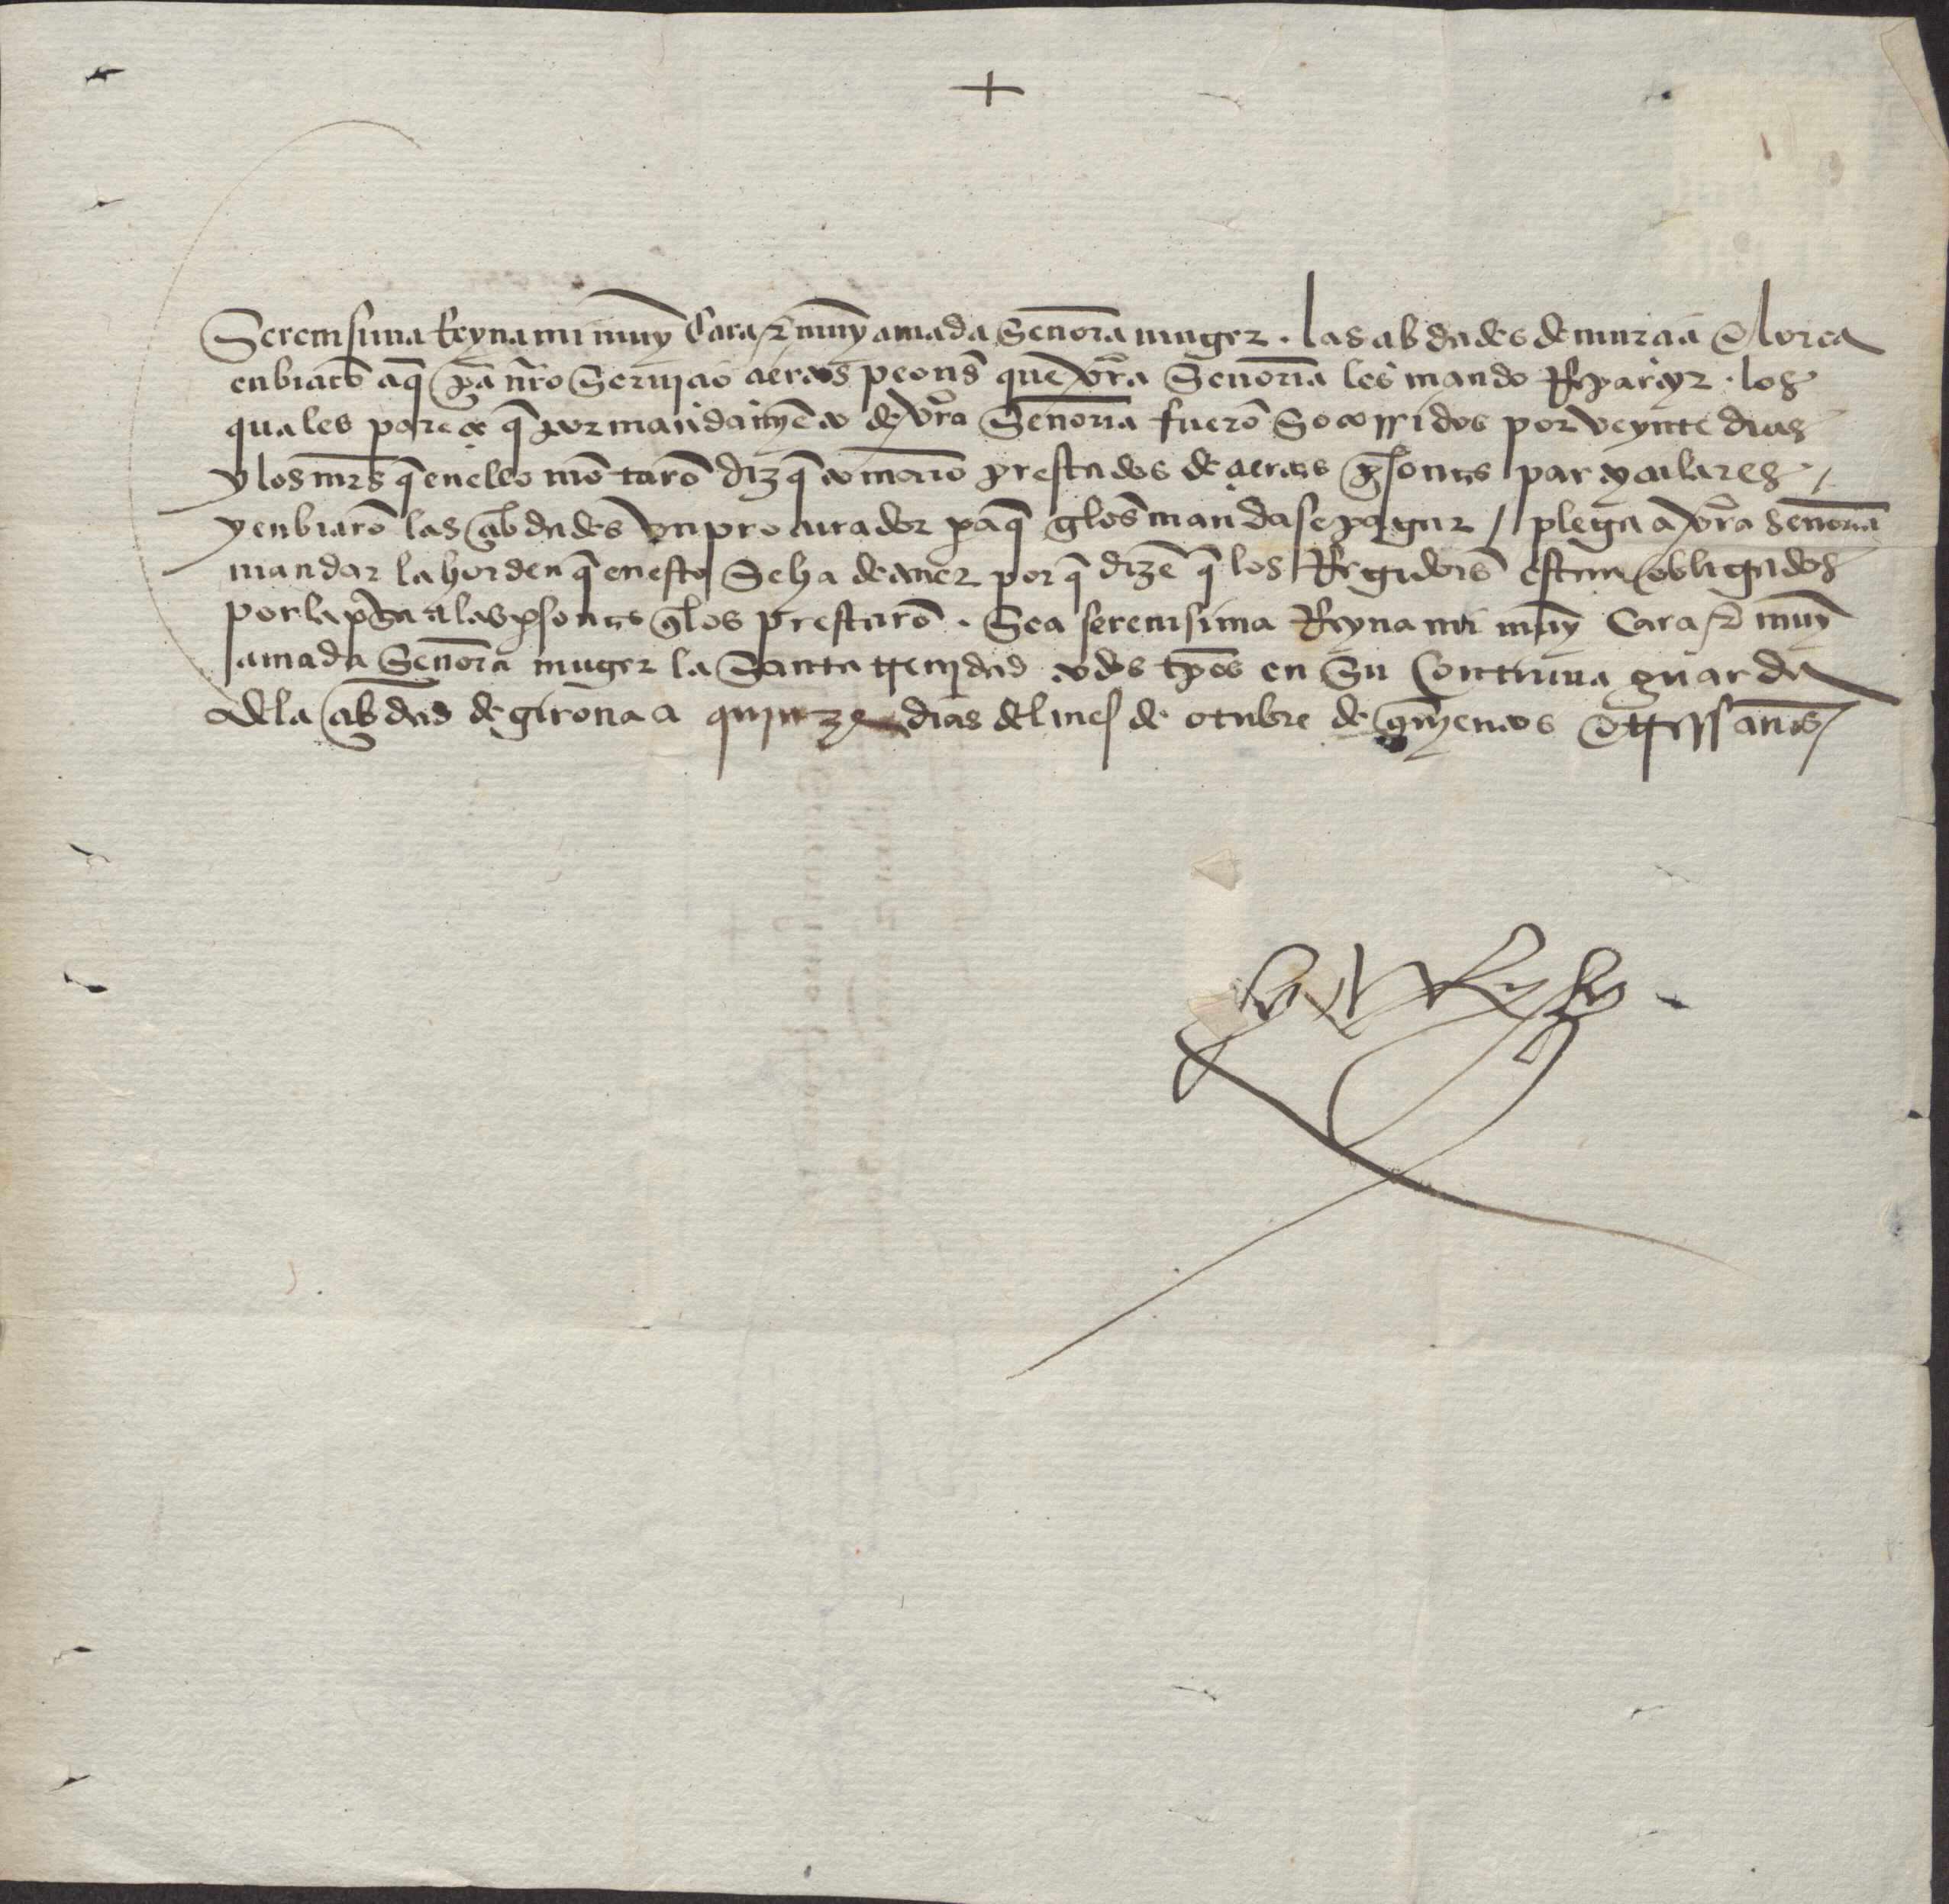 +
Serenisima Reyna mi muy Cara ⁊ muy amada Señora muger · las cibdades de murcia e lorca
enbiarō aq̄ pa nro Seruicio ciertos peones que vra Señoria les mando Repartyr · los
quales parece q̄ por mandamyēto de vra Señoria fuerō Socorridos por veynte dias
y los mrs q̄ en ello mōtarō diz q̄ tomarō prestados de ciertas psonas partyculares /
y enbiarō las cibdades vn procurador paq̄ gelos mandase pagar / plega a vra Señoria
mandar la horden q̄ en esto Se ha de aver por q̄ dizē q̄ los Regidores estan obligados
por la paga a las psonas q̄ los prestarō · Sea serenisima Reyna mi muy Cara ⁊ muy
amada Señora muger la Santa trenidad todos tpos en Su Continua guarda
de la cibdad de girona a quinze dias del mes de otubre de qinientos e tres años /
yo el Rey